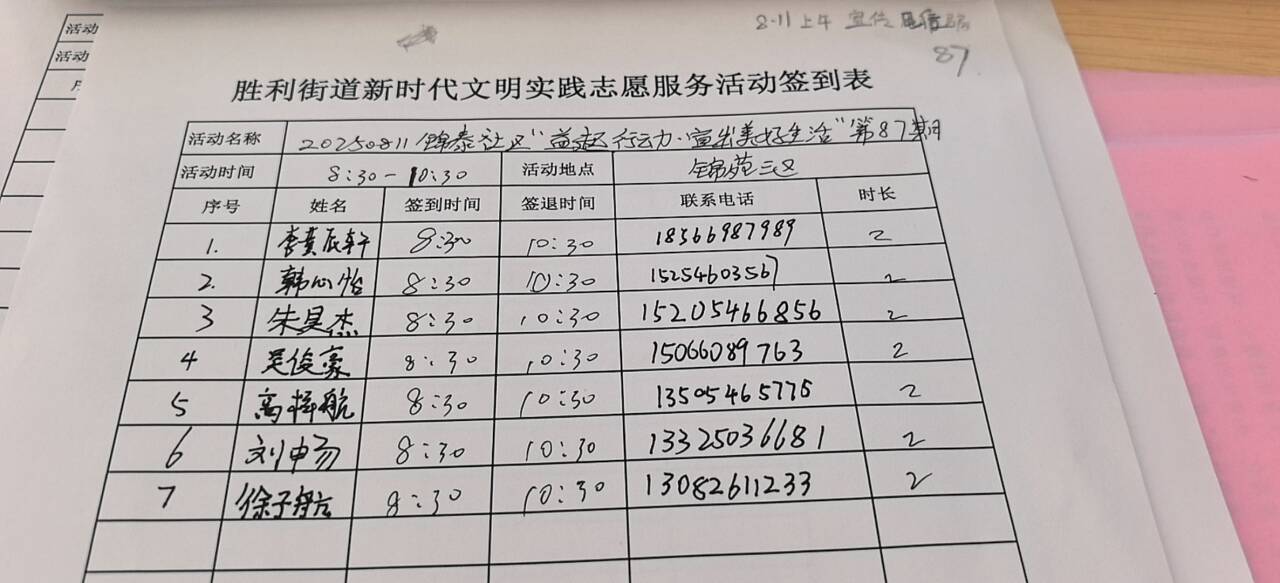 活动
活动
8.11上午 宣传
87
胜利街道新时代文明实践志愿服务活动签到表
活动名称 20250811锦泰社区"益起行动力·宣出美好生活"第87期
活动时间 8:30-10:30 活动地点 锦苑三区
序号 姓名 签到时间 签退时间 联系电话 时长
1. 李黄辰轩 8:30 10:30 18566987989 2
2. 韩心怡 8:30 10:30 15254603567 2
3 朱昊杰 8:30 10:30 15205466856 2
4 吴俊豪 8:30 10:30 15066089763 2
5 高梓航 8:30 10:30 13505465775 2
6 刘申易 8:30 10:30 13325036681 2
7 徐子航 8:30 10:30 13082611233 2